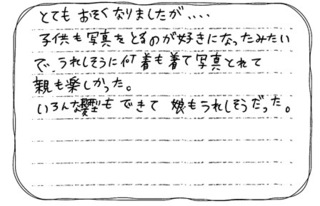 とてもおそくなりましたが....
子供も写真をとるのが好きになったみたい
で、うれしそうに何着も着て写真とれて
親も楽しかった。
いろんな髪型もできて 娘もうれしそうだった。